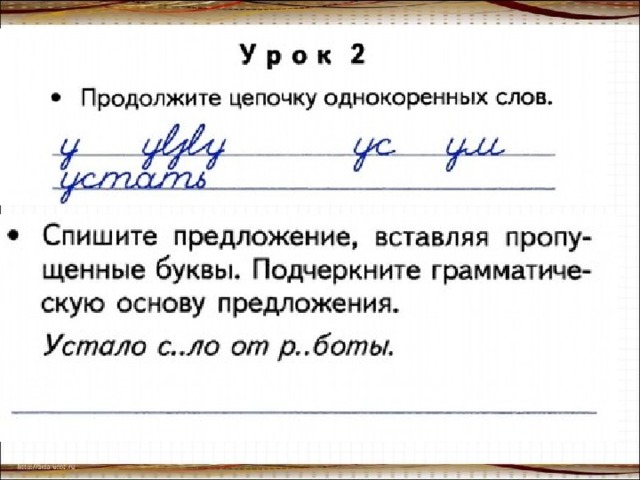 Урок 2
• Продолжите цепочку однокоренных слов.
у ус ум
устать
• Спишите предложение, вставляя пропу-
щенные буквы. Подчеркните грамматиче-
скую основу предложения.
Устало с..ло от р..боты.